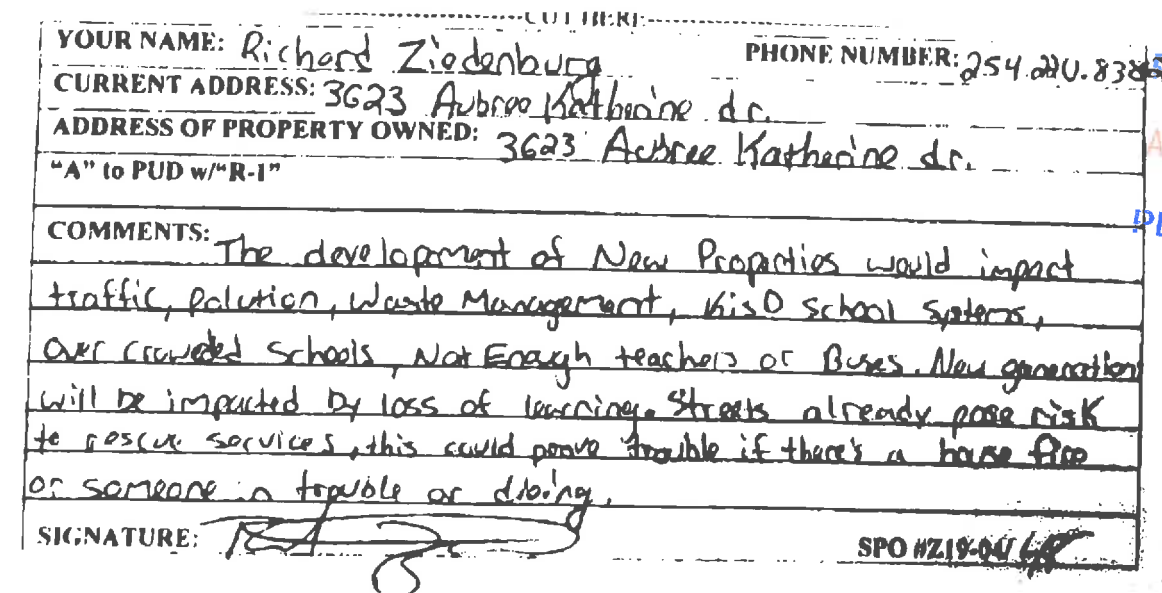 CUT HERE
YOUR NAME: Richard Ziedenburg PHONE NUMBER: 254.220.838
CURRENT ADDRESS: 3623 Aubree Katherine dr.
ADDRESS OF PROPERTY OWNED: 3623 Aubree Katherine dr.
"A" to PUD w/"R-1"
COMMENTS: The development of New Properties would impact
traffic, polution, Waste Management, KisD School Systems,
Over crowded Schools, Not Enough teachers or Buses. New generation
will be impacted by loss of learning. Streets already pose risk
to rescue services, this could prove trouble if there's a house fire
or someone in trouble or
SIGNATURE:
SPO #Z19-04